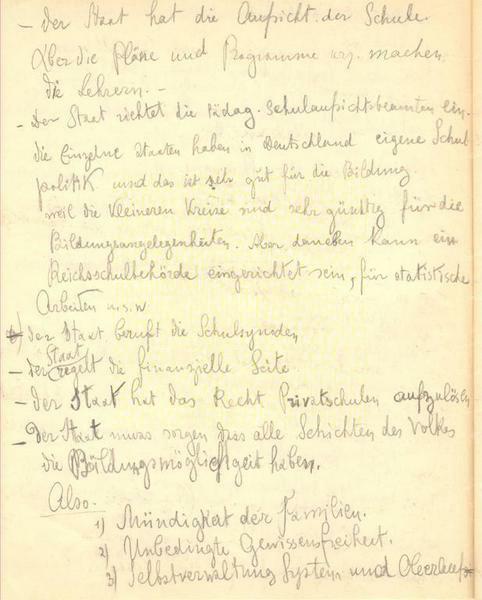 - Der Staat hat die Aufsicht der Schule.
Über die Pläne und Programme machen
die Lehrern. -
- Der Staat richtet die Pädag. Schulaufsichtsbeamten ein.
die Einzelne Staaten haben in Deutschland eigene Schul
politik und das ist sehr gut für die Bildung.
weil die kleineren Kreise sind sehr günstig für die
Bildungsangelegenheiten. Aber daneben kann ein
Reichsschulbehörde eingerichtet sein, für statistische
Arbeiten u.s.w
der Staat beruft die Schulsynoden
Staat
- der regelt die finanzielle Seite
- der Staat hat das Recht Privatschulen aufzulösen
- Der Staat muss sorgen dass alle Schichten des Volkes
die Bildungsmöglichkeit haben.
Also.
1) Mündigkeit der Familien.
2) Unbedingte Gewissensfreiheit.
3) Selbstverwaltung System und Oberauf-